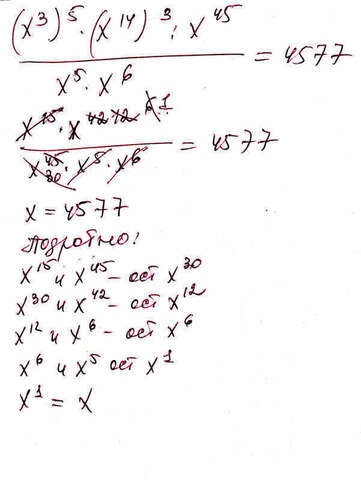 (x³)⁵ · (x¹⁴)³ : x⁴⁵
x⁵ · x⁶
= 4577
x¹⁵ · x⁴² 12 6 1
x⁴⁵ 30 · x⁵ · x⁶
= 4577
x = 4577
подробно:
x¹⁵ и x⁴⁵ – ост x³⁰
x³⁰ и x⁴² – ост x¹²
x¹² и x⁶ – ост x⁶
x⁶ и x⁵ ост x¹
x¹ = x